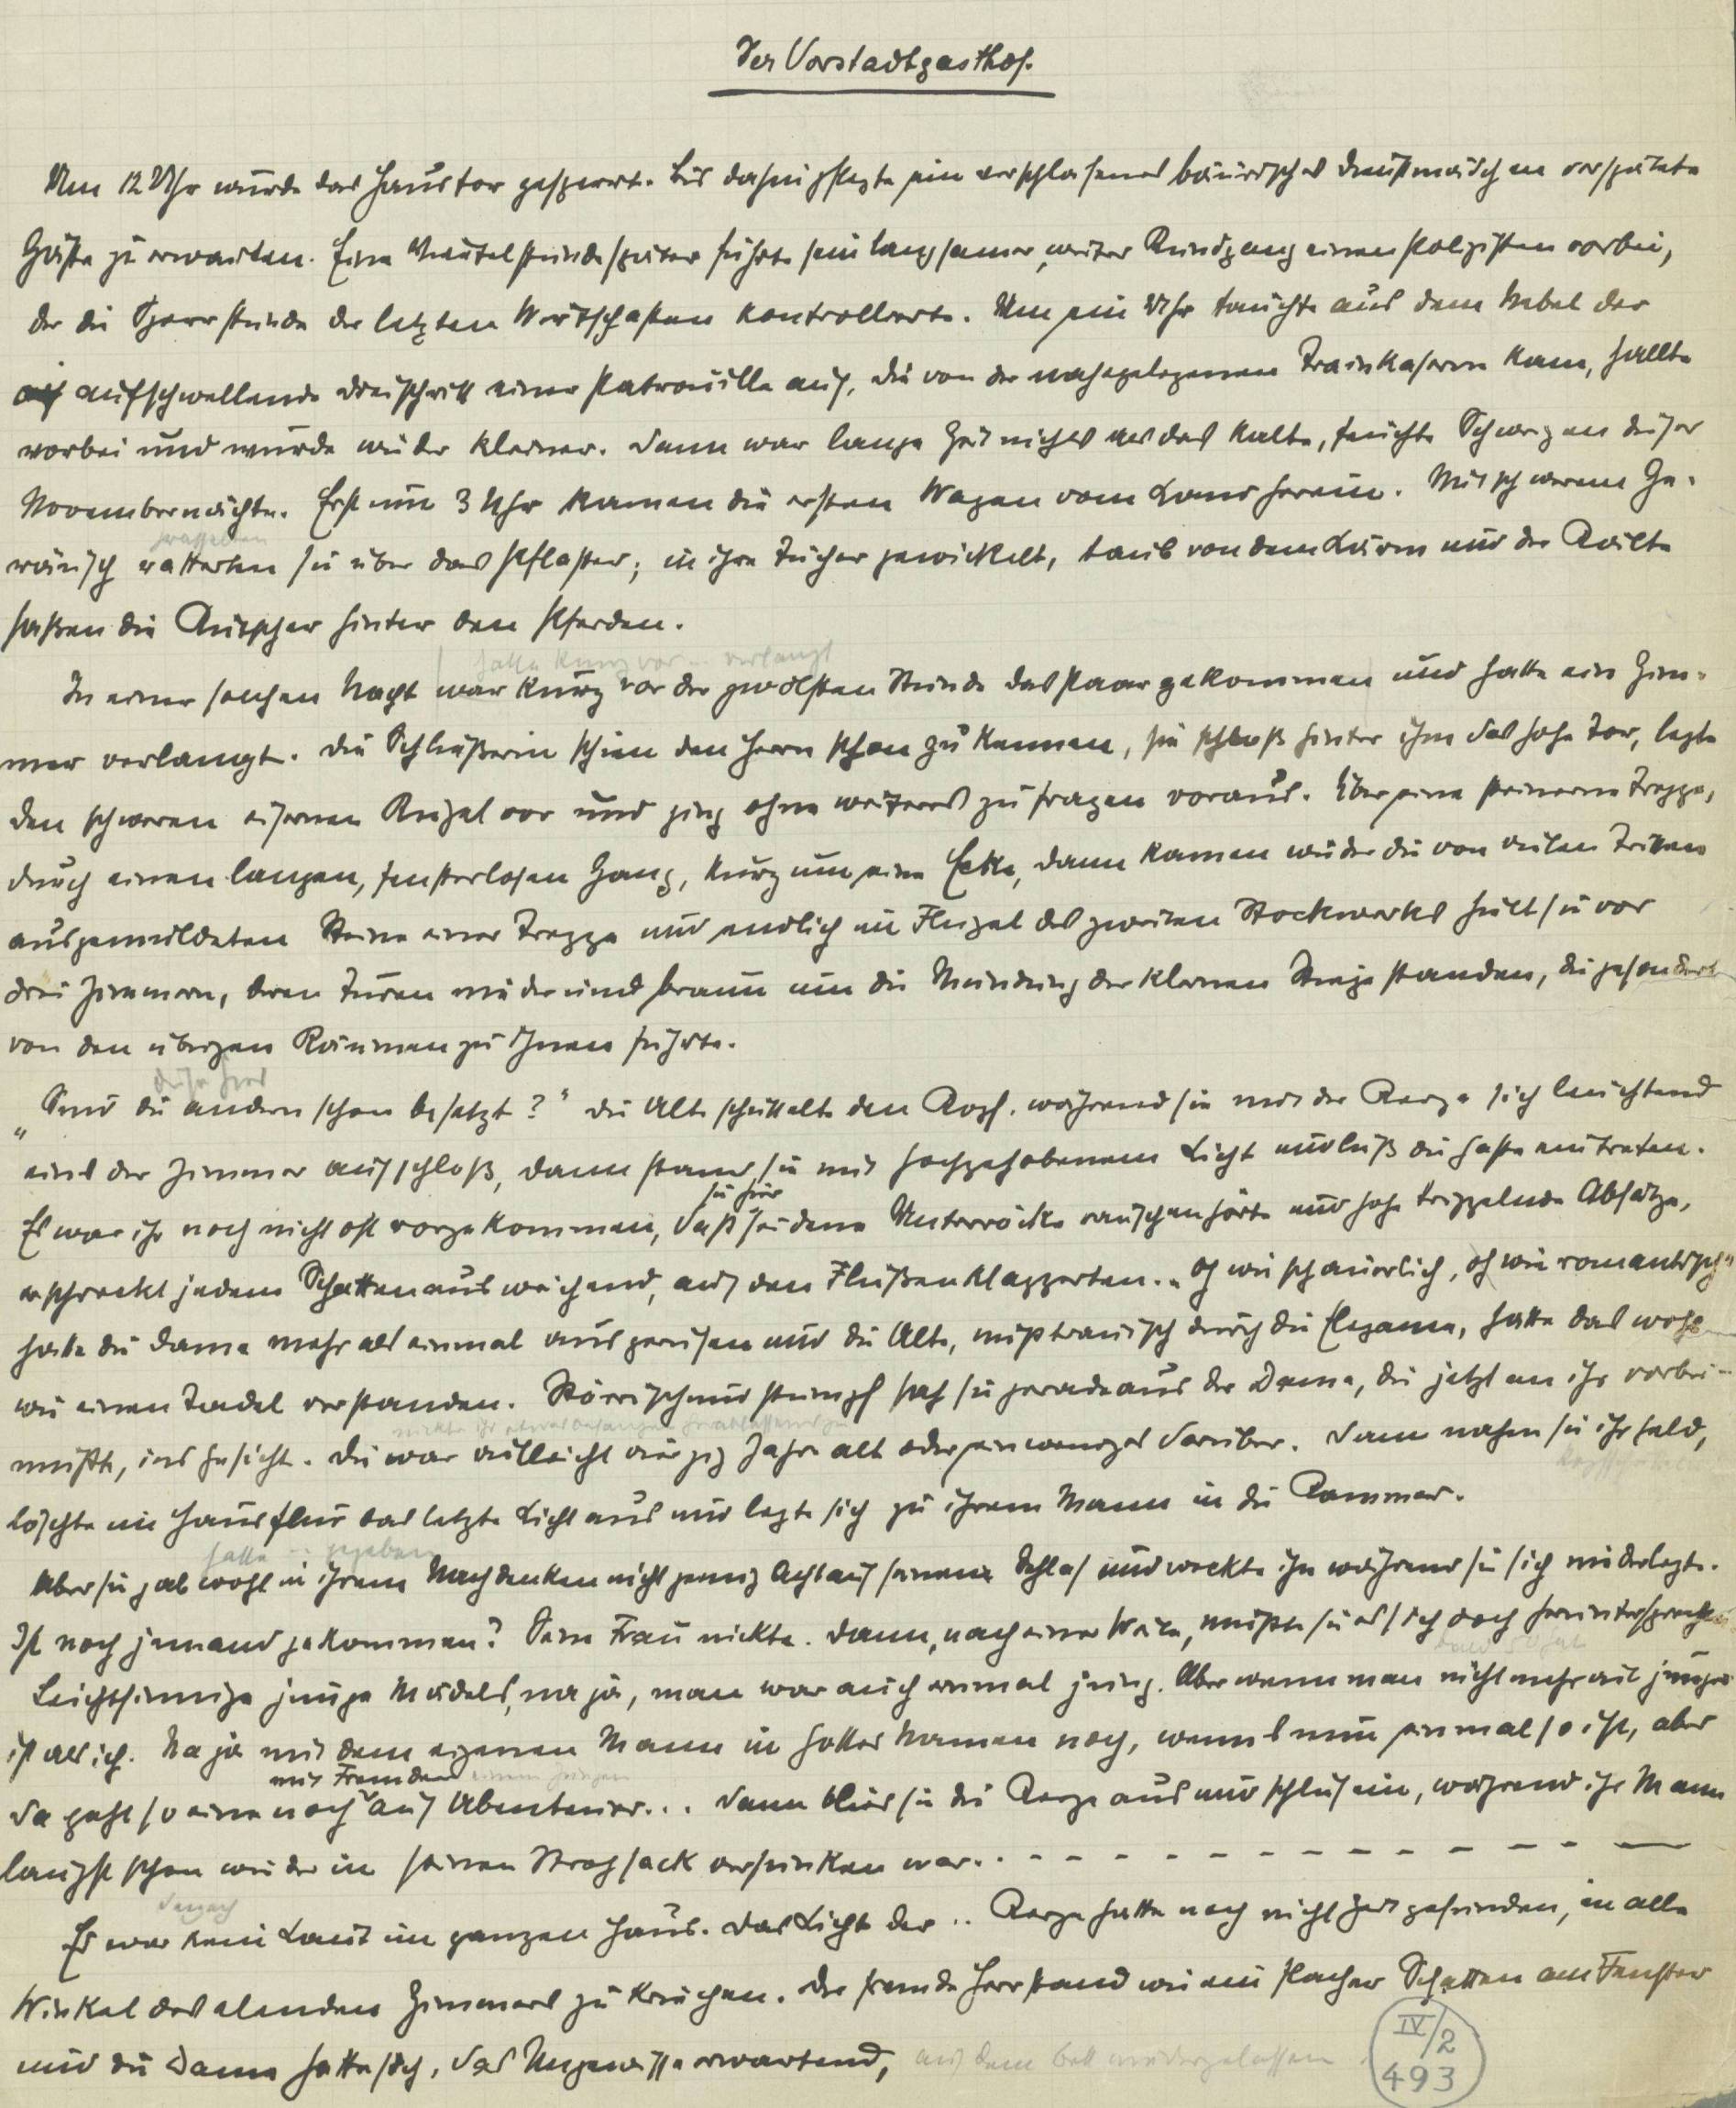 Der Vorstadtgasthof.
Um 12 Uhr wurde das Haustor gesperrt. Bis dahin pflegte ein verschlafenes bäurisches Dienstmädchen verspätete
Gäste zu erwarten. Eine Viertelstunde später führte sein langsamer, weiter Rundgang einen Polizisten vorbei,
der die Sperrstunde der letzten Wirtschaften kontrollierte. Um ein Uhr tauchte aus dem Nebel der
aufschwellende Dreischritt einer Patrouille auf, die von der nahegelegenen Trainkaserne kam, hallte
vorbei und wurde wieder kleiner. Dann war lange Zeit nichts als das kalte, feuchte Schweigen dieser
Novembernächte. Erst um 3 Uhr kamen die ersten Wagen vom Land herein. Mit schwerem Ge-
prasselten
räusch ratterten sie über das Pflaster; in ihre Tücher gewickelt, taub von dem Lärm und der Kälte
saßen die Kutscher hinter den Pferden.
hatte kurz vor .. verlangt
In einer solchen Nacht war kurz vor der zwölften Stunde das Paar gekommen und hatte ein Zim-
mer verlangt. Die Schließerin schien den Herrn schon zu kennen, sie schloß hinter ihm das hohe Tor, legte
den schweren eisernen Riegel vor und ging ohne weiteres zu fragen voraus. Über eine steinerne Treppe,
durch einen langen, fensterlosen Gang, kurz um eine Ecke, dann kamen wieder die von vielen Tritten
ausgemuldeten Steine einer Treppe und endlich im Flügel des zweiten Stockwerks hielt sie vor
drei Zimmern, deren Türen nieder und braun um die Mündung der kleinen Stiege standen, die gesondert
von den übrigen Räumen zu Ihnen führte.
„Sind die andern schon besetzt?" Die Alte schüttelte den Kopf, während sie mit der Kerze sich leuchtend
eines der Zimmer aufschloß, dann stand sie mit hochgehobenem Licht und ließ die Gäste eintreten.
sie hier
Es war ihr noch nicht oft vorgekommen, daß seidene Unterröcke rauschen hörte und hohe trippelnde Absätze,
erschreckt jedem Schatten ausweichend, auf den Fließen klapperten. „Oh wie schauerlich, oh wie romantisch"
hatte die Dame mehr als einmal ausgerufen und die Alte, mißtrauisch durch die Eleganz, hatte das wohl
wie einen Tadel verstanden. Störrisch und stumpf sah sie geradeaus der Dame, die jetzt an ihr vorbei-
mußte, ins Gesicht. Die war vielleicht vierzig Jahre alt oder ein weniges darüber. Dann nahm sie ihr Geld,
löschte im Hausflur das letzte Licht aus und legte sich zu ihrem Mann in die Kammer.
hatte .. gegeben
Aber sie gab wohl in ihrem Nachdenken nicht genug Acht auf seinen Schlaf und weckte ihn während sie sich niederlegte.
Ist noch jemand gekommen? Seine Frau nickte. Dann, nach einer Weile, mußte sie es sich doch heruntersprechen
Leichtsinnige junge Mädels, na ja, man war auch einmal jung. Aber wenn man nicht mehr viel jünger
ist als ich. Na ja mit dem eigenen Mann in Gottes Namen noch, wenns nun einmal so ist, aber
mit Fremden einem jungen
da geht so eine noch auf Abenteuer... Dann blies sie die Kerze aus und schlief ein, während ihr Mann
längst schon wieder in seinen Strohsack versunken war. . - - - - - - - - - - - -
danach
Es war kein Laut im ganzen Haus. Das Licht der .. Kerze hatte noch nicht Zeit gefunden, in alle
Winkel des elenden Zimmers zu kriechen. Der fremde Herr stand wie ein flacher Schatten am Fenster
und die Dame hatte sich, das Ungewisse erwartend, auf dem Bett niedergelassen
IV/2
493